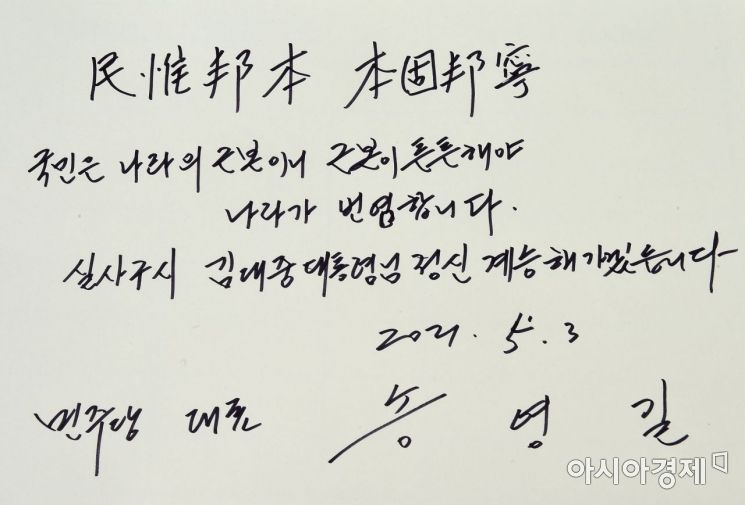 民惟邦本 本固邦寧
국민은 나라의 근본이니 근본이 튼튼해야
나라가 번영합니다.
실사구시 김대중대통령님 정신 계승해가겠습니다
2021. 5. 3
민주당 대표 송영길
아시아경제